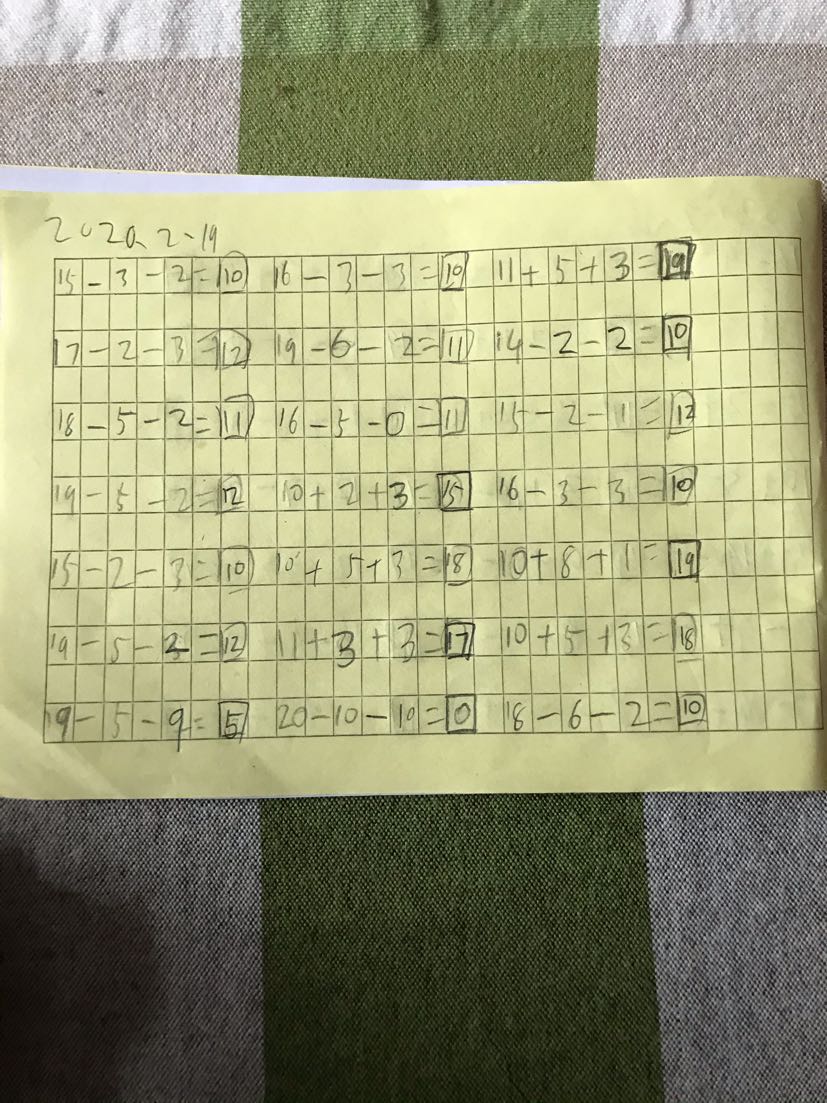 2020、2-19
15-3-2=10 16-3-3=10 11+5+3=19
17-2-3=12 19-6-2=11 14-2-2=10
18-5-2=11 16-5-0=11 15-2-1=12
19-5-2=12 10+2+3=15 16-3-3=10
15-2-3=10 10+5+3=18 10+8+1=19
19-5-2=12 11+3+3=17 10+5+3=18
19-5-9=5 20-10-10=0 18-6-2=10